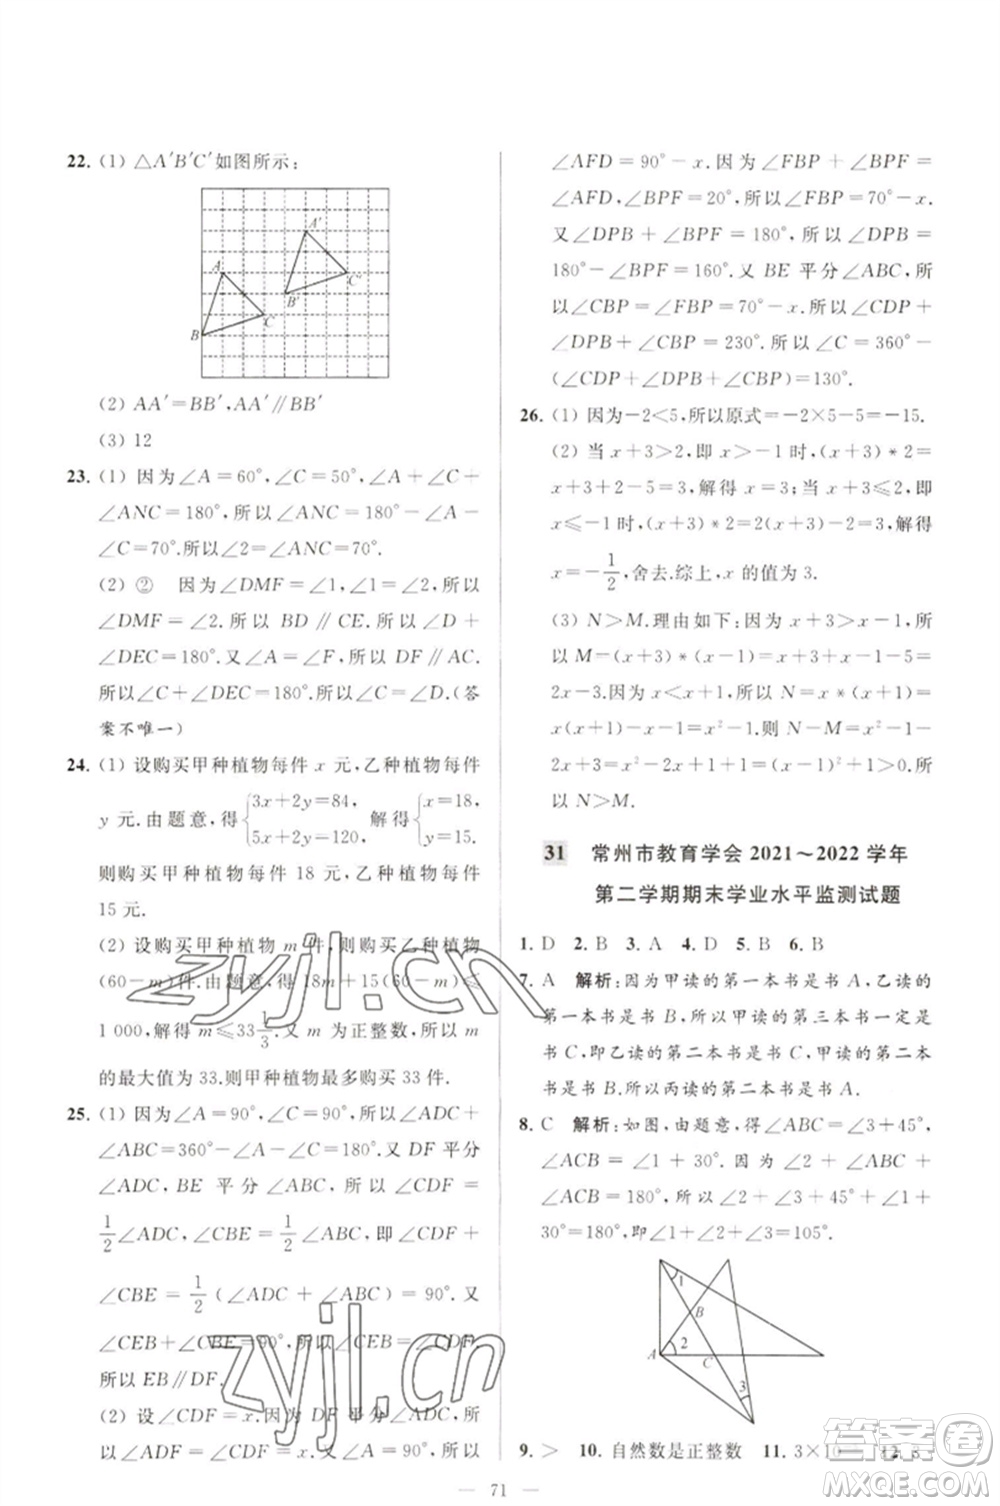 22. (1) △A′B′C′如图所示:
A′
A
C′
B′
C
B
(2) AA′=BB′,AA′∥BB′
(3) 12
23. (1) 因为∠A=60°,∠C=50°,∠A+∠C+
∠ANC=180°,所以∠ANC=180°-∠A-
∠C=70°.所以∠2=∠ANC=70°.
(2) ② 因为∠DMF=∠1,∠1=∠2,所以
∠DMF=∠2.所以 BD∥CE.所以∠D+
∠DEC=180°.又∠A=∠F,所以 DF∥AC.
所以∠C+∠DEC=180°.所以∠C=∠D.(答
案不唯一)
24. (1) 设购买甲种植物每件 x 元,乙种植物每件
y 元.由题意,得{3x+2y=84, 5x+2y=120, 解得{x=18, y=15.
则购买甲种植物每件 18 元,乙种植物每件
15 元.
(2) 设购买甲种植物 m 件,则购买乙种植物
(60-m)件.由题意,得 18m+15(60-m)≤
1 000,解得 m≤33 1/3.又 m 为正整数,所以 m
的最大值为 33.则甲种植物最多购买 33 件.
25. (1) 因为∠A=90°,∠C=90°,所以∠ADC+
∠ABC=360°-∠A-∠C=180°.又 DF 平分
∠ADC,BE 平分∠ABC,所以∠CDF=
1/2∠ADC,∠CBE=1/2∠ABC,即∠CDF+
∠CBE=1/2(∠ADC+∠ABC)=90°.又
∠CEB+∠CBE=90°,所以∠CEB=∠CDF.
所以 EB∥DF.
(2) 设∠CDF=x.因为 DF 平分∠ADC,所
以∠ADF=∠CDF=x.因为∠A=90°,所以
∠AFD=90°-x.因为∠FBP+∠BPF=
∠AFD,∠BPF=20°,所以∠FBP=70°-x.
又∠DPB+∠BPF=180°,所以∠DPB=
180°-∠BPF=160°.又 BE 平分∠ABC,所
以∠CBP=∠FBP=70°-x.所以∠CDP+
∠CBP=70°.所以∠C=360°-
(∠CDP+∠DPB+∠CBP)=130°.
26. (1) 因为-2<5,所以原式=-2×5-5=-15.
(2) 当 x+3>2,即 x>-1 时,(x+3)*2=
x+3+2-5x,解得 x=3;当 x+3≤2,即
x≤-1 时,(x+3)*2=2(x+3)-2=3,解得
x=-1/2,舍去.综上,x 的值为 3.
(3) N>M.理由如下:因为 x+3>x-1,所
以 M=(x+3)*(x-1)=x+3+x-1-5=
2x-3.因为 x<x+1,所以 N=x*(x+1)=
x(x+1)-(x+1)=x²-1.则 N-M=x²-1
-(2x-3)=x²-2x+1+1=(x-1)²+1>0.所
以 N>M.
31 常州市教育学会 2021～2022 学年
第二学期期末学业水平监测试题
1. D 2. B 3. A 4. D 5. B 6. B
7. A 解析:因为甲读的第一本书是书 A,乙读的
第一本书是书 B,所以甲读的第三本书一定是
书 C,即乙读的第二本书是书 C,甲读的第二本
书是书 B.所以丙读的第二本书是书 A.
8. C 解析:如图,由题意,得∠ABC=∠3+45°,
∠ACB=∠1+45°.因为∠2+∠ABC+
∠ACB=180°,所以∠2+∠3+45°+∠1+
30°=180°,即∠1+∠2+∠3=105°.
1
B
A
2
C
3
9. > 10. 自然数是正整数 11. 3×10 12. 3
71
zyjl.cn
zyjl.cn
答案圈
MXQE.COM